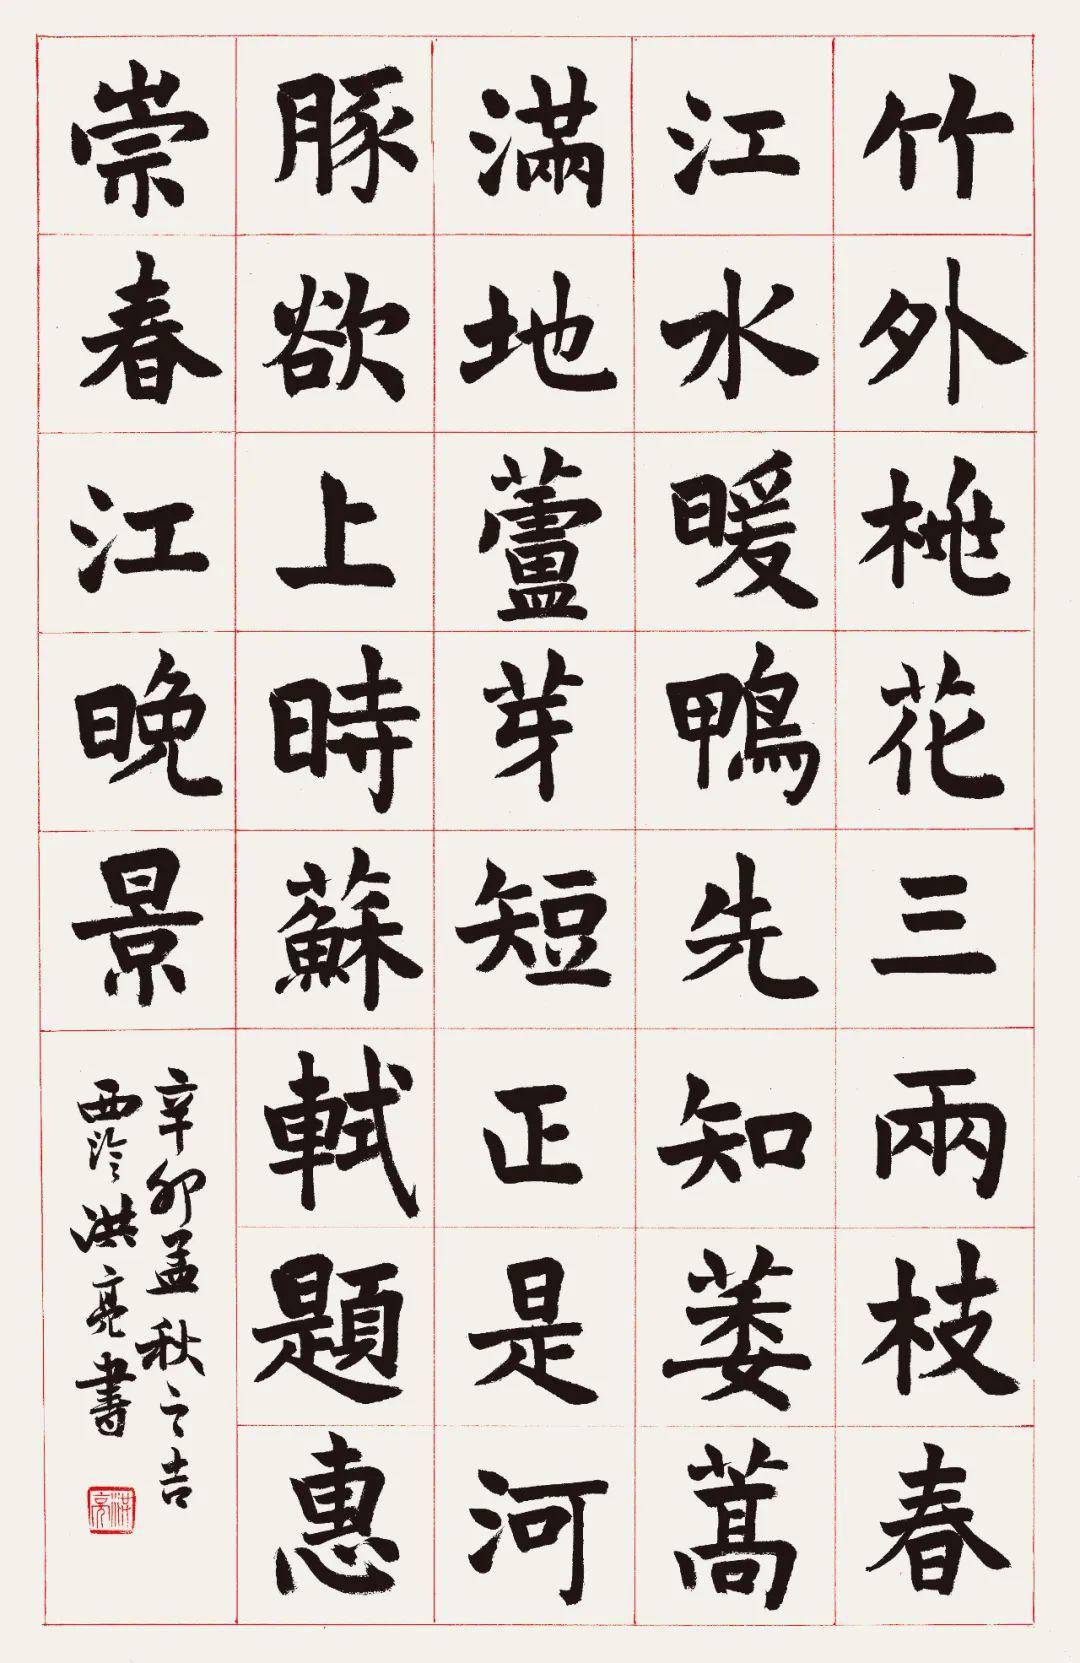 竹外桃花三兩枝春
江水暖鴨先知蔞蒿
滿地蘆芽短正是河
豚欲上時蘇軾題惠
崇春江晚景
辛卯孟秋之吉
西泠洪亮書
洪亮